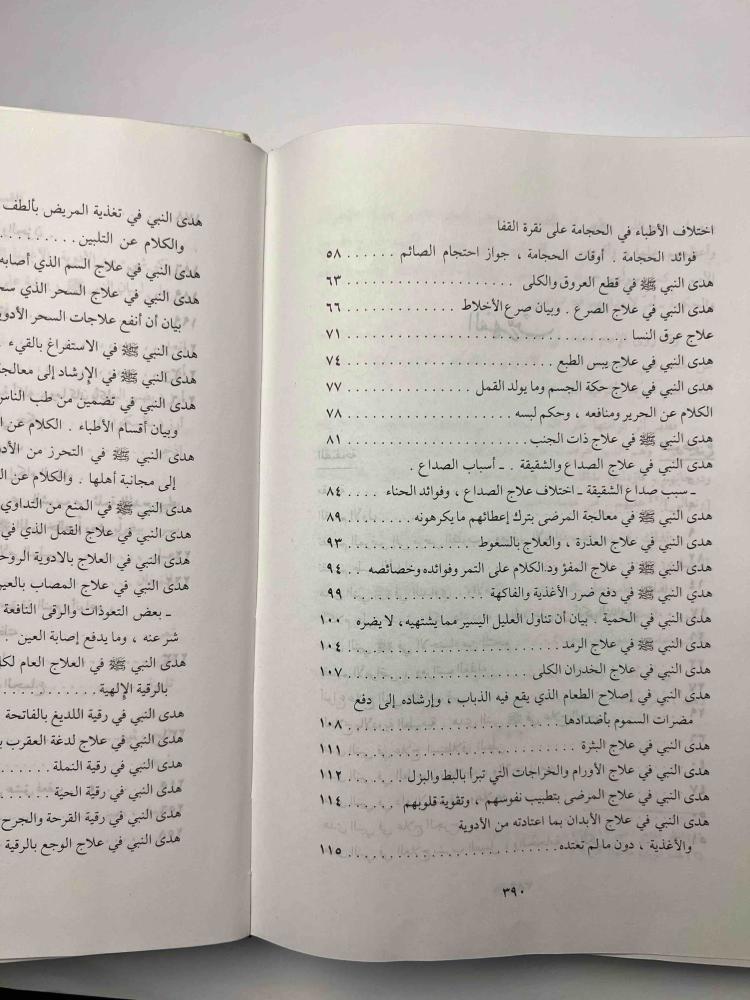 اختلاف الأطباء في الحجامة على نقرة القفا
فوائد الحجامة . أوقات الحجامة ، جواز احتجام الصائم ...... ٥٨
هدى النبي ﷺ في قطع العروق والكلى .................. ٦٣
هدى النبي في علاج الصرع . وبيان صرع الأخلاط ............. ٦٦
علاج عرق النسا .................................. ٧١
هدى النبي في علاج يبس الطبع ........................ ٧٤
هدى النبي في علاج حكة الجسم وما يولد القمل ............... ٧٧
الكلام عن الحرير ومنافعه ، وحكم لبسه .................... ٧٨
هدى النبي ﷺ في علاج ذات الجنب ...................... ٨١
هدى النبي في علاج الصداع والشقيقة . ـ أسباب الصداع .
ـ سبب صداع الشقيقة ـ اختلاف علاج الصداع ، وفوائد الحناء .... ٨٤
هدى النبي ﷺ في معالجة المرضى بترك إعطائهم ما يكرهونه ........ ٨٩
هدى النبي ﷺ في علاج العذرة ، والعلاج بالسعوط ............. ٩٣
هدى النبي ﷺ في علاج المفؤود.الكلام على التمر وفوائده وخصائصه .. ٩٤
هدى النبي ﷺ في دفع ضرر الأغذية والفاكهة ................ ٩٩
هدى النبي في الحمية . بيان أن تناول العليل اليسير مما يشتهيه، لا يضره ١٠٠
هدى النبي ﷺ في علاج الرمد ........................ ١٠٤
هدى النبي في علاج الخدران الكلى ...................... ١٠٧
هدى النبي في إصلاح الطعام الذي يقع فيه الذباب ، وإرشاده إلى دفع
مضرات السموم بأضدادها ........................... ١٠٨
هدى النبي في علاج البثرة .......................... ١١١
هدى النبي في علاج الأورام والخراجات التي تبرأ بالبط والبزل ........ ١١٢
هدى النبي في علاج المرضى بتطبيب نفوسهم ، وتقوية قلوبهم ....... ١١٤
هدى النبي في علاج الأبدان بما اعتادته من الأدوية
والأغذية ، دون ما لم تعتده .......................... ١١٥
٣٩٠
هدى النبي في تغذية المريض بألطف
والكلام عن التلبين .........
هدى النبي ﷺ في علاج السم الذي أصابه
هدى النبي ﷺ في علاج السحر الذي
بيان أن أنفع علاجات السحر
هدى النبي ﷺ في الاستفراغ بالقيء .
هدى النبي ﷺ في الإرشاد إلى
هدى النبي في تضمين من طب
وبيان أقسام الأطباء . الكلام عن
هدى النبي ﷺ في التحرز من
إلى مجانبة أهلها . والكلام عن
هدى النبي ﷺ في المنع من التداوي
هدى النبي ﷺ في علاج القمل الذي في
هدى النبي في العلاج بالادوية
هدى النبي ﷺ في علاج المصاب
ـ بعض التعوذات والرقى النافعة
شر عنه ، وما يدفع إصابة العين ..
هدى النبي ﷺ في العلاج العام
بالرقية الإلهية ...........
هدى النبي في رقية اللديغ بالفاتحة
هدى النبي في علاج لدغة العقرب
هدى النبي في رقية النملة ........
هدى النبي في رقية الحية ........
هدى النبي في رقية القرحة والجرح
هدى النبي في علاج الوجع بالرقية